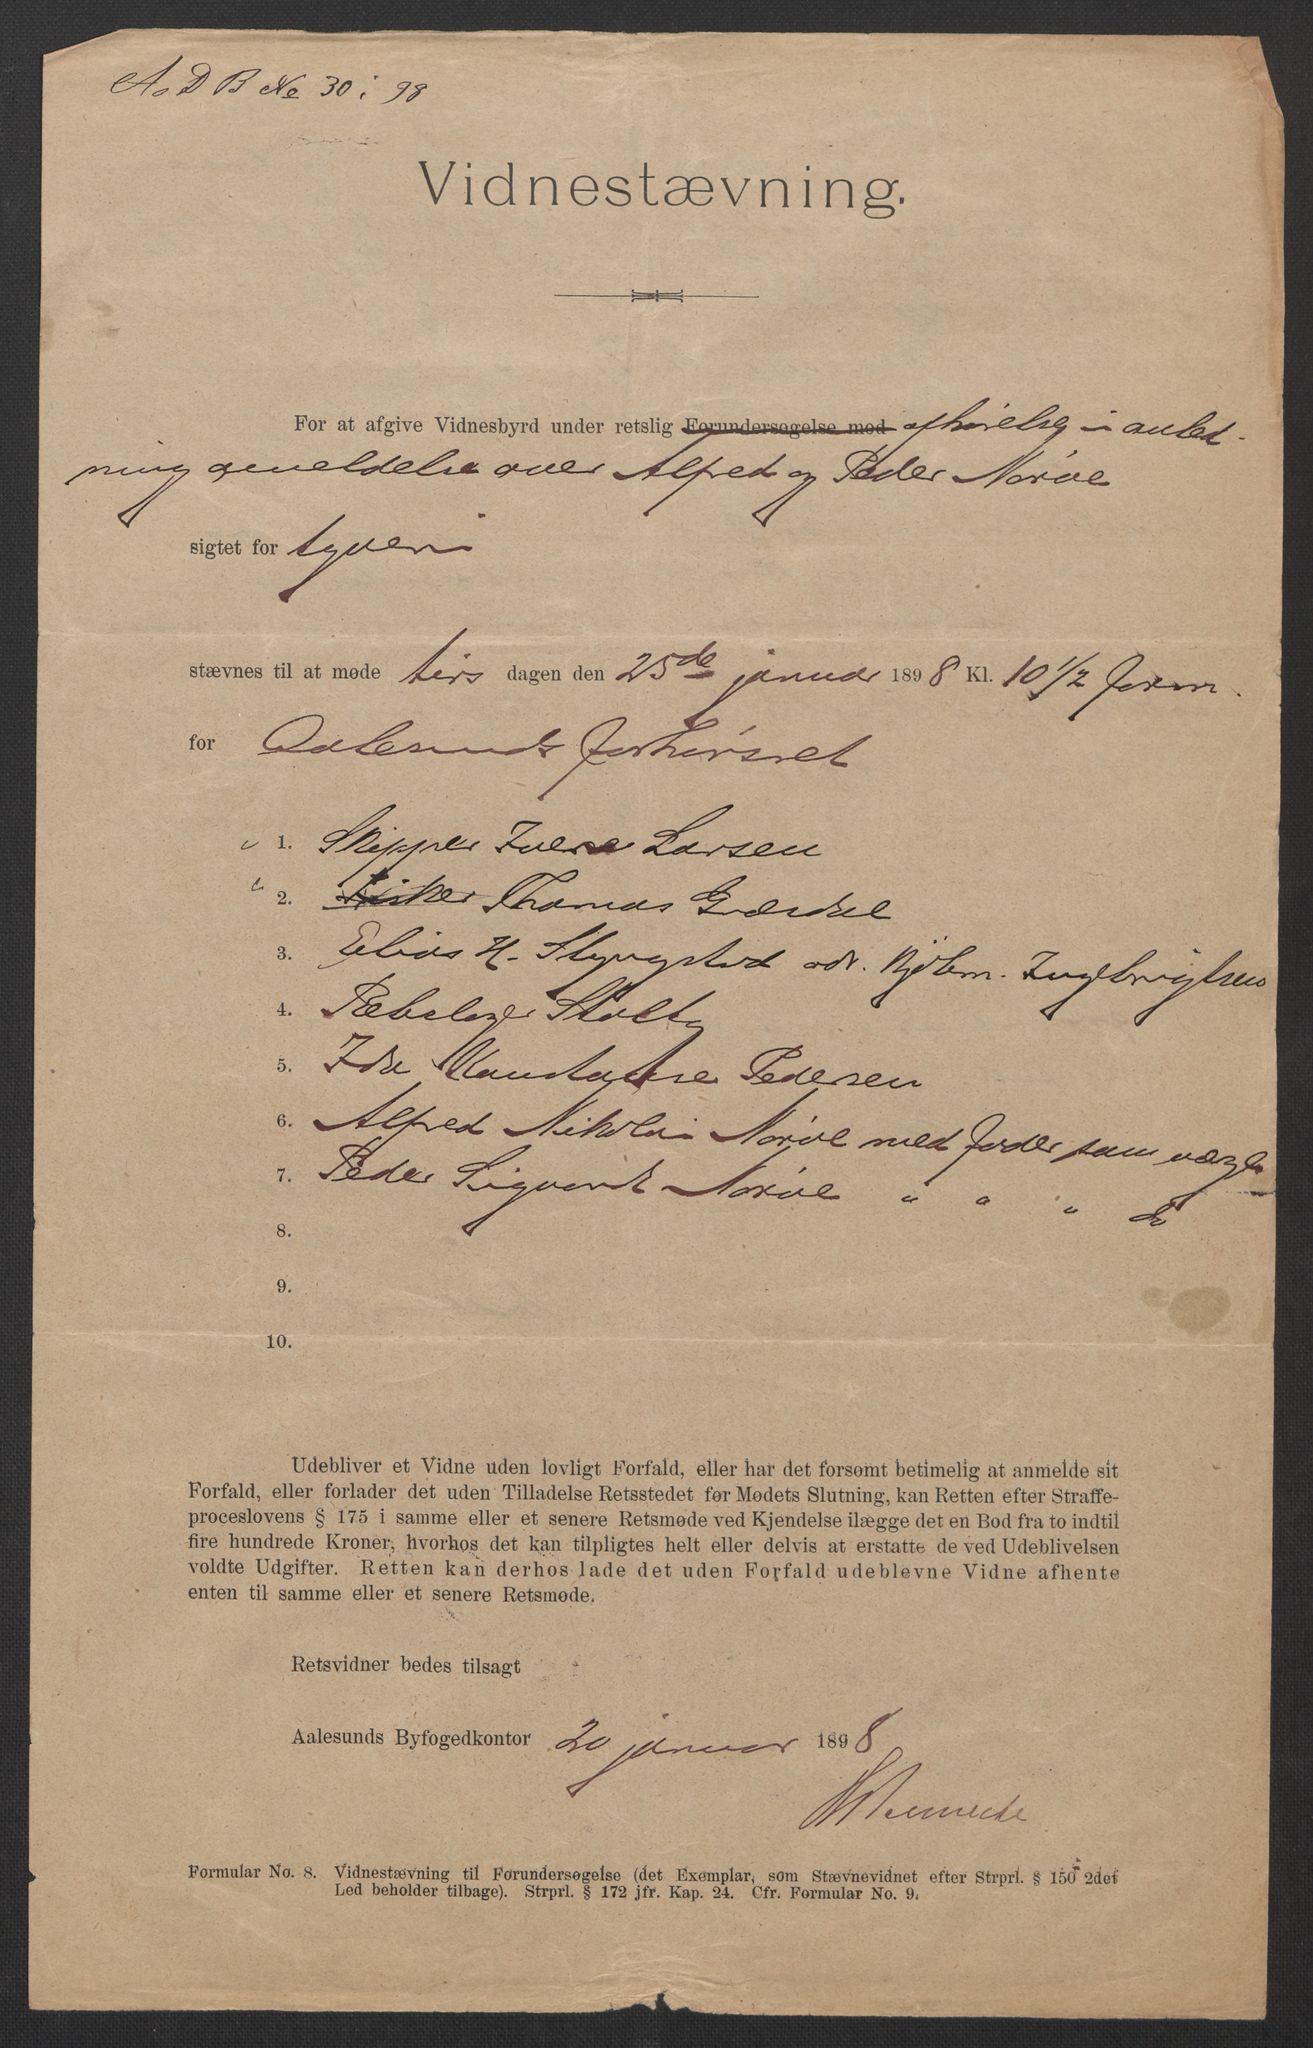 A. D B No 30 i 98
Vidnestævning.
For at afgive Vidnesbyrd under retslig Forundersøgelse mod afhørelse i anled-
ning anmeldelse over Alfred og Peder Nørve
sigtet for tyveri
stævnes til at møde tirs dagen den 25de januar 1898 Kl. 10 1/2 form.
for Aalesunds forhørsret
1. Skipper Iver Larsen
2. Fisker Thomas
3. Elias H. adr. Ingebrigtsen
4. Ræbslager Stoltz
5. Ida Konstanse Pedersen
6. Alfred Nikolai Nørve med fader som værge
7. Peder Sigvardt Nørve " " " do
8.
9.
10.
Udebliver et Vidne uden lovligt Forfald, eller har det forsømt betimelig at anmelde sit
Forfald, eller forlader det uden Tilladelse Retsstedet før Mødets Slutning, kan Retten efter Straffe-
proceslovens § 175 i samme eller et senere Retsmøde ved Kjendelse ilægge det en Bod fra to indtil
fire hundrede Kroner, hvorhos det kan tilpligtes helt eller delvis at erstatte de ved Udeblivelsen
voldte Udgifter. Retten kan derhos lade det uden Forfald udeblevne Vidne afhente
enten til samme eller et senere Retsmøde.
Retsvidner bedes tilsagt
Aalesunds Byfogedkontor 20 januar 1898
Formular No. 8. Vidnestævning til Forundersøgelse (det Exemplar, som Stævnevidnet efter Strprl. § 150 2det
Led beholder tilbage). Strprl. § 172 jfr. Kap. 24. Cfr. Formular No. 9.